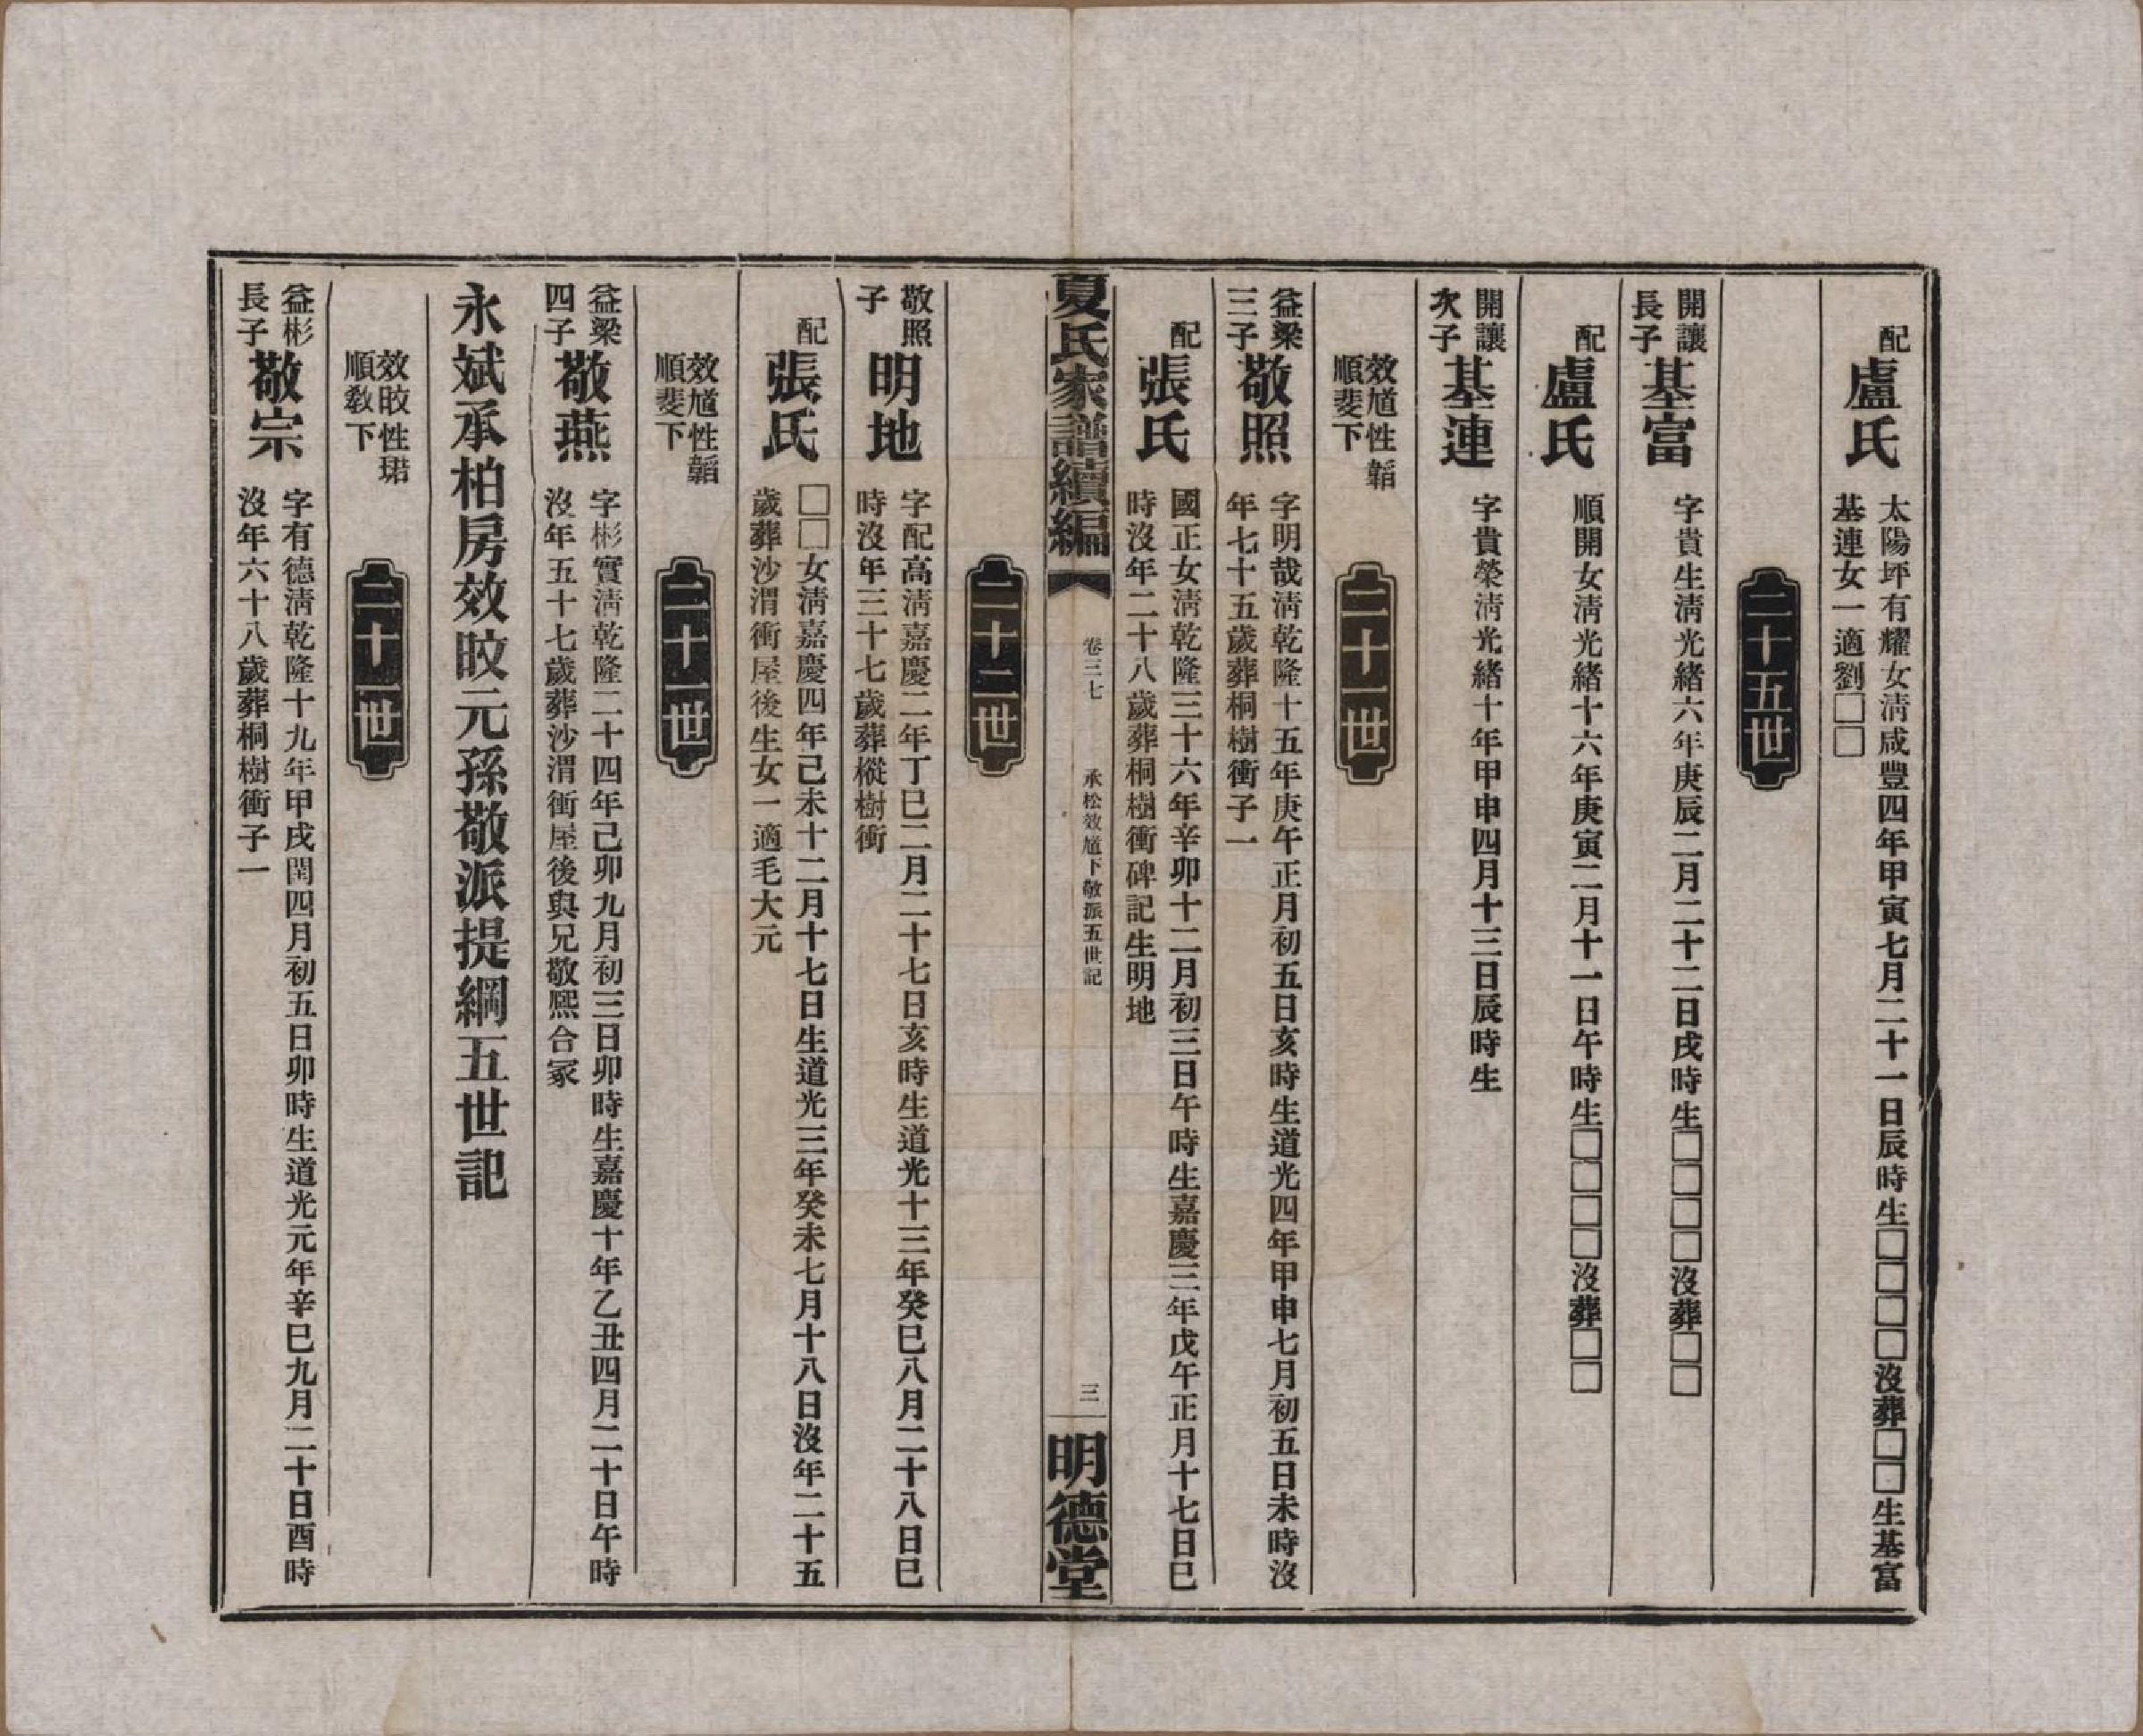 配
盧氏
太陽坪有耀女淸咸豐四年甲寅七月二十一日辰時生□□□□沒葬□□生基富
基連女一適劉□□
二十五世
開讓
長子
基富
字貴生淸光緒六年庚辰二月二十二日戌時生□□□□沒葬□□
配
盧氏
順開女淸光緒十六年庚寅二月十一日午時生□□□□沒葬□□
開讓
次子
基連
字貴榮淸光緒十年甲申四月十三日辰時生
效馗性韜
順斐下
二十一世
益梁
三子
敬照
字明哉淸乾隆十五年庚午正月初五日亥時生道光四年甲申七月初五日未時沒
年七十五歲葬桐樹衝子一
配
張氏
國正女淸乾隆三十六年辛卯十二月初三日午時生嘉慶三年戊午正月十七日巳
時沒年二十八歲葬桐樹衝碑記生明地
夏氏家譜續編
卷三七
承松效馗下敬派五世記
三
明德堂
二十二世
敬照
子
明地
字配高淸嘉慶二年丁巳二月二十七日亥時生道光十三年癸巳八月二十八日巳
時沒年三十七歲葬樅樹衝
配
張氏
□□女淸嘉慶四年己未十二月十七日生道光三年癸未七月十八日沒年二十五
歲葬沙渭衝屋後生女一適毛大元
效馗性韜
順斐下
二十一世
益梁
四子
敬燕
字彬實淸乾隆二十四年己卯九月初三日卯時生嘉慶十年乙丑四月二十日午時
沒年五十七歲葬沙渭衝屋後與兄敬熙合冢
永斌承柏房效旼元孫敬派提綱五世記
效旼性珺
順敎下
二十一世
益彬
長子
敬宗
字有德淸乾隆十九年甲戌閏四月初五日卯時生道光元年辛巳九月二十日酉時
沒年六十八歲葬桐樹衝子一